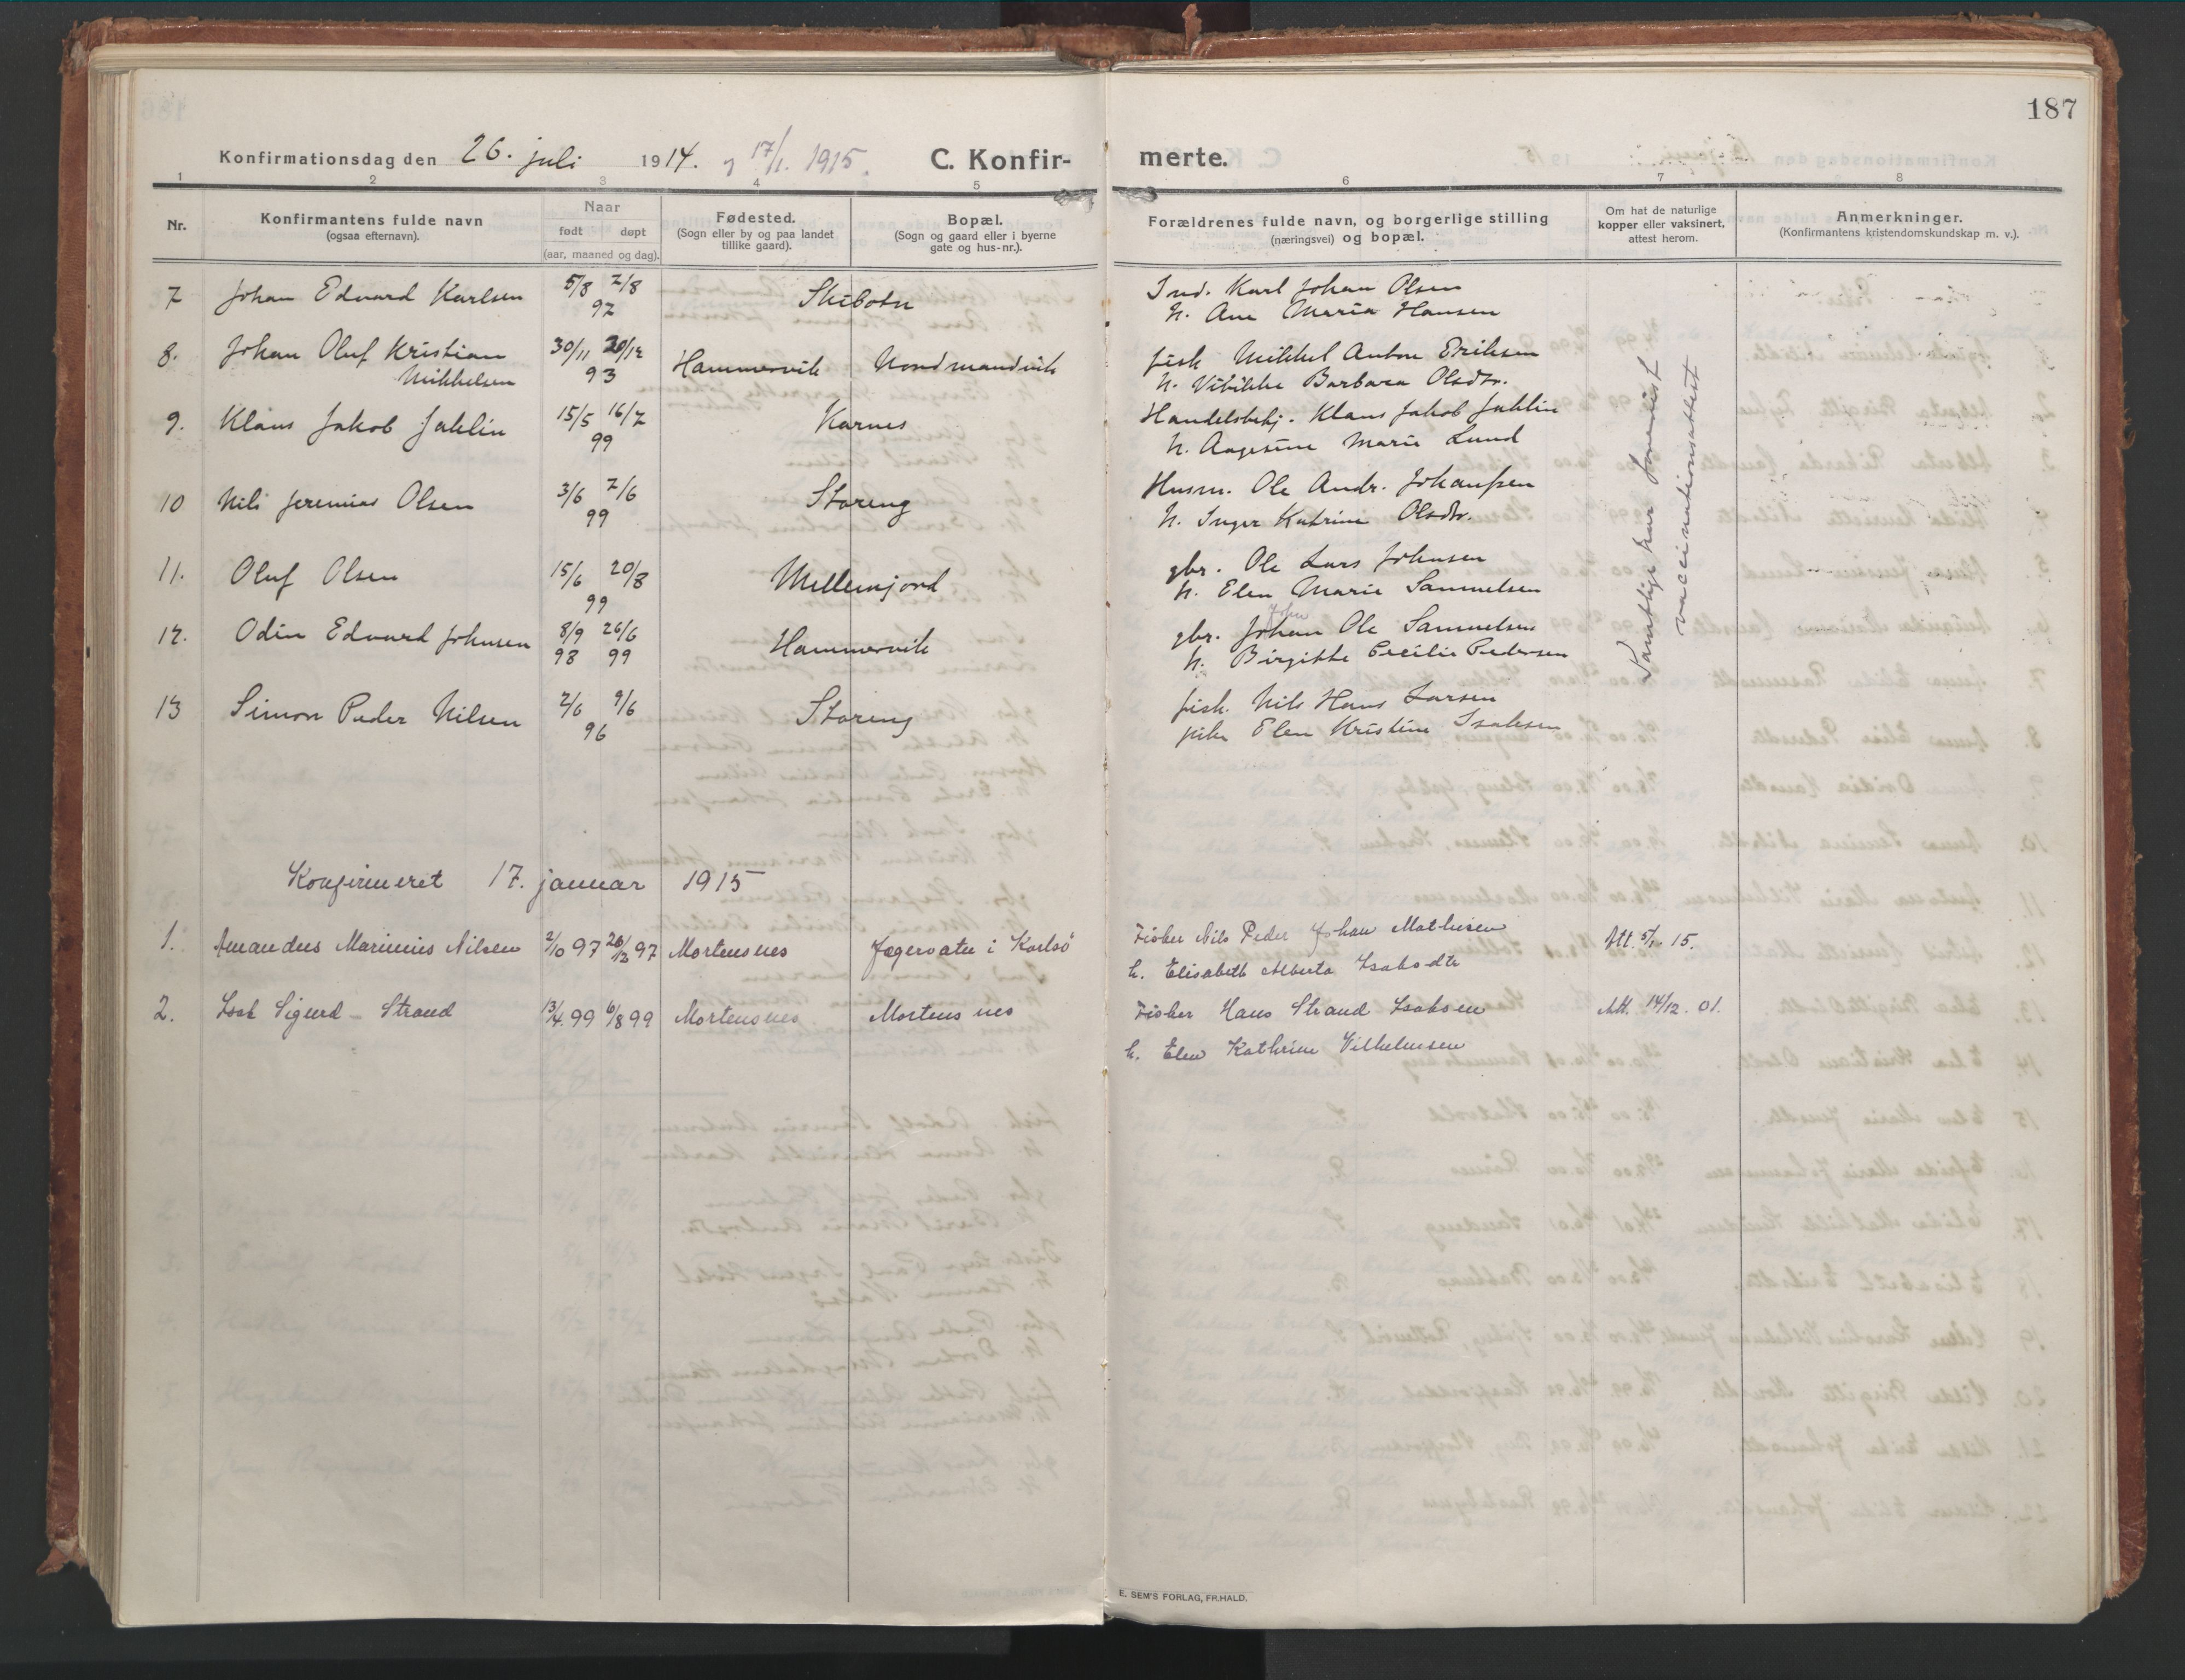 187
Konfirmationsdag den 26. juli 1914. og 17/1. 1915. C. Konfir- merte.
1 2 3 4 5 6 7 8
Nr. Konfirmantens fulde navn (ogsaa efternavn). Naar født døpt (aar, maaned og dag). Fødested. (Sogn eller by og paa landet tillike gaard). Bopæl. (Sogn og gaard eller i byerne gate og hus-nr.). Forældrenes fulde navn, og borgerlige stilling (næringsvei) og bopæl. Om hat de naturlige kopper eller vaksinert, attest herom. Anmerkninger. (Konfirmantens kristendomskundskap m. v.).
7 Johan Edvard Karlsen 5/8 7/8 97 Skibotn Ind. Karl Johan Olsen
h. Ane Maria Hansen
8. Johan Oluf Kristian Mikkelsen 30/11 20/12 93 Hammervik Nordmandvik fisk Mikkel Anton Eriksen
h. Vibikke Barbara Olsdtr.
9. Klaus Jakob Jaklin 15/5 16/7 99 Karnes Handelsbetj. Klaus Jakob Jaklin
h. Aagesine Marie Lund
10 Nils Jeremias Olsen 3/6 7/6 99 Storeng Husm. Ole Andr. Johanssen
h. Inger Katrine Olsdtr.
11. Oluf Olsen 15/6 20/8 99 Millemjord gbr. Ole Lars Johnsen
h. Elen Marie Samuelsen
12. Odin Edvard Johnsen 8/9 98 26/6 99 Hammervik gbr. Johan Ole Samuelsen
John
h. Birgitte Cecilie Pedersen
13 Simon Peder Nilsen 2/6 9/6 96 Storeng fisk. Nils Hans Larsen
pike Elen Kristine Isaksen
Samtlige har forevist
vaccinationsattest
Konfirmeret 17. januar 1915
1. Amandus Marinius Nilsen 2/10 97 26/12 97 Mortensnes Fagervatn i Karlsö Fisker Nils Peder Johan Mathisen Att. 5/1. 15.
h. Elisabeth Alberta Isaksdtr
2. Isak Sigurd Strand 13/4. 99 6/8 99 Mortensnes Mortensnes Fisker Hans Strand Isaksen Att. 14/12. 01.
h. Elen Kathrine Vilhelmsen
E. SEM'S FORLAG, FR.HALD.